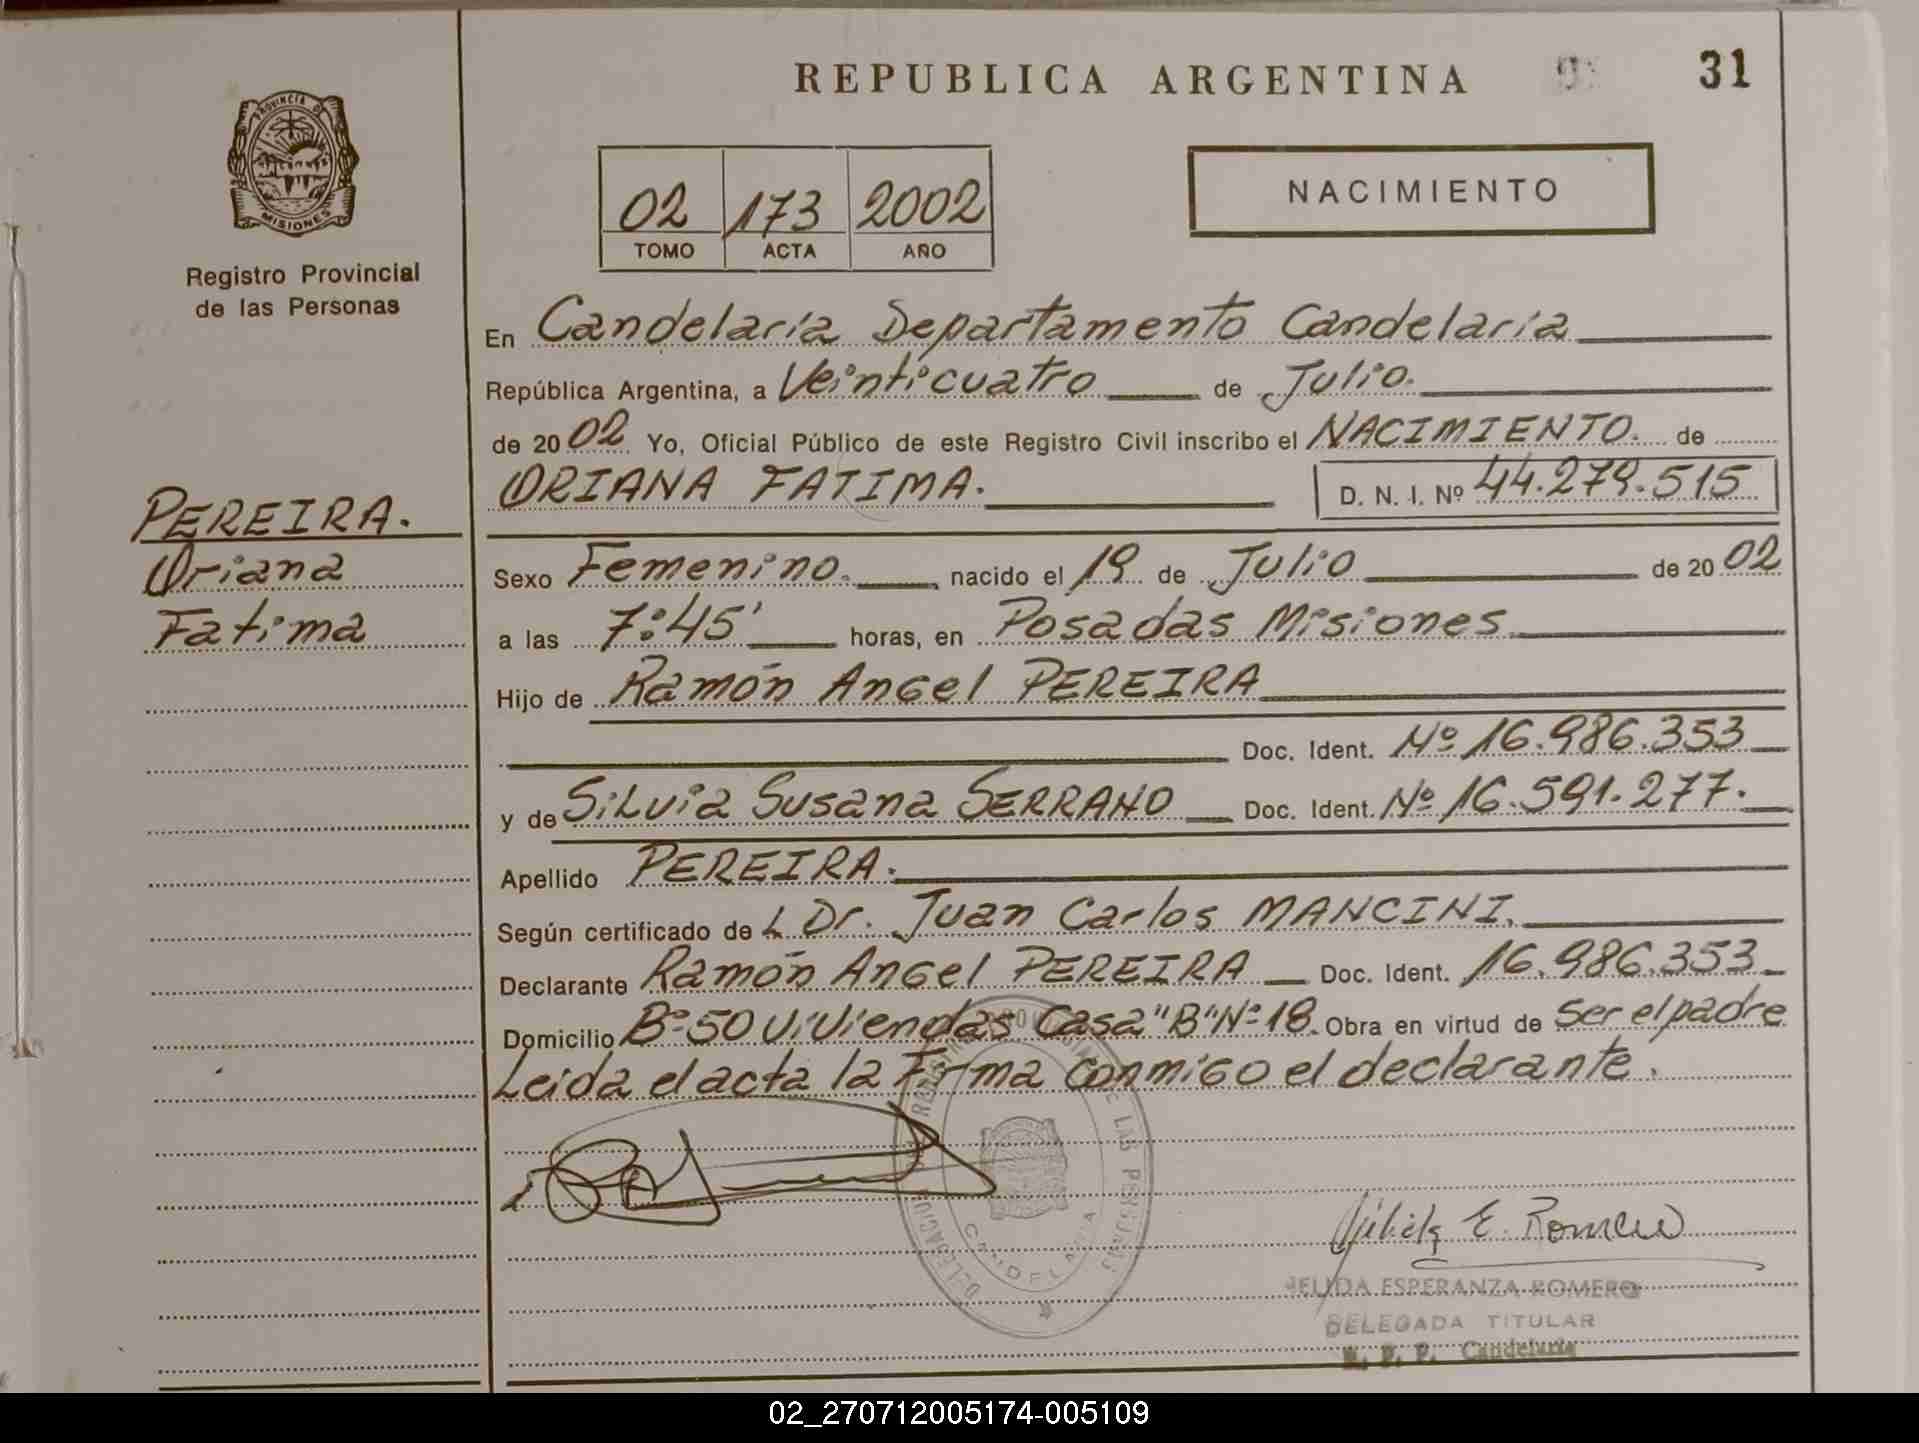 REPUBLICA ARGENTINA
31
PROVINCIA DE MISIONES
Registro Provincial
de las Personas
02 173 2002
TOMO ACTA AÑO
NACIMIENTO
En Candelaria Departamento Candelaria
República Argentina, a Veinticuatro de Julio.
de 2002 Yo, Oficial Público de este Registro Civil inscribo el NACIMIENTO. de
ORIANA FATIMA. D. N. I. Nº 44.279.515
PEREIRA.
Oriana
Fatima
Sexo Femenino. nacido el 19 de Julio de 2002
a las 7:45' horas, en Posadas Misiones
Hijo de Ramón Angel PEREIRA
Doc. Ident. Nº 16.986.353
y de Silvia Susana SERRANO Doc. Ident. Nº 16.591.277.
Apellido PEREIRA.
Según certificado de L Dr. Juan Carlos MANCINI.
Declarante Ramón Angel PEREIRA Doc. Ident. 16.986.353
Domicilio Bº 50 viviendas Casa "B" Nº 18. Obra en virtud de ser el padre
Leida el acta la Firma conmigo el declarante.
CANDELARIA
E. Romero
ESPERANZA ROMERO
DELEGADA TITULAR
R. P. P. Candelaria
02_270712005174-005109